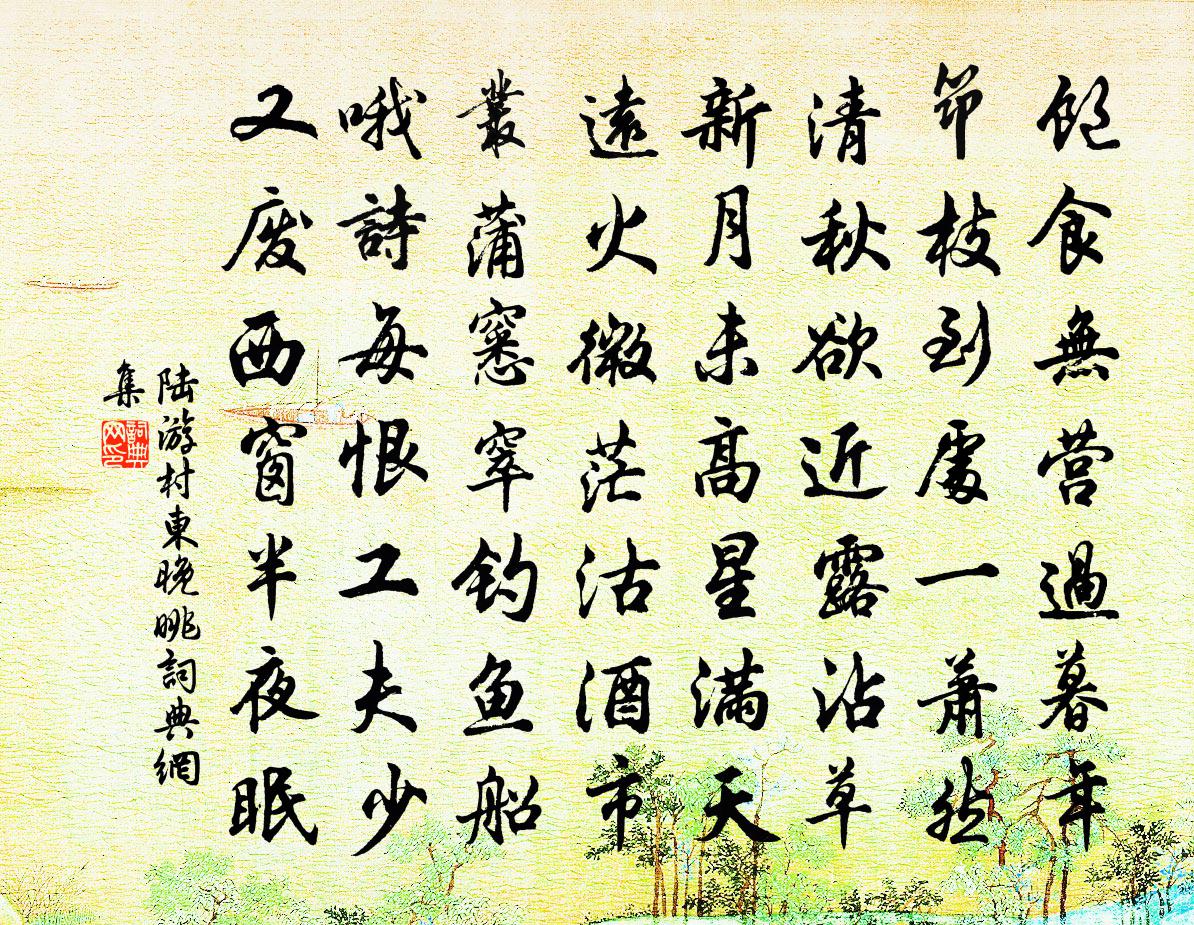 飽食無营過暮年
笻枝到處一蕭然
清秋欲近露沾草
新月未高星滿天
遠火微茫沽酒市
叢蒲窸窣钓鱼船
哦詩每恨工夫少
又废西窗半夜眠
陆游村東晚眺詞典網
集
詞典网印